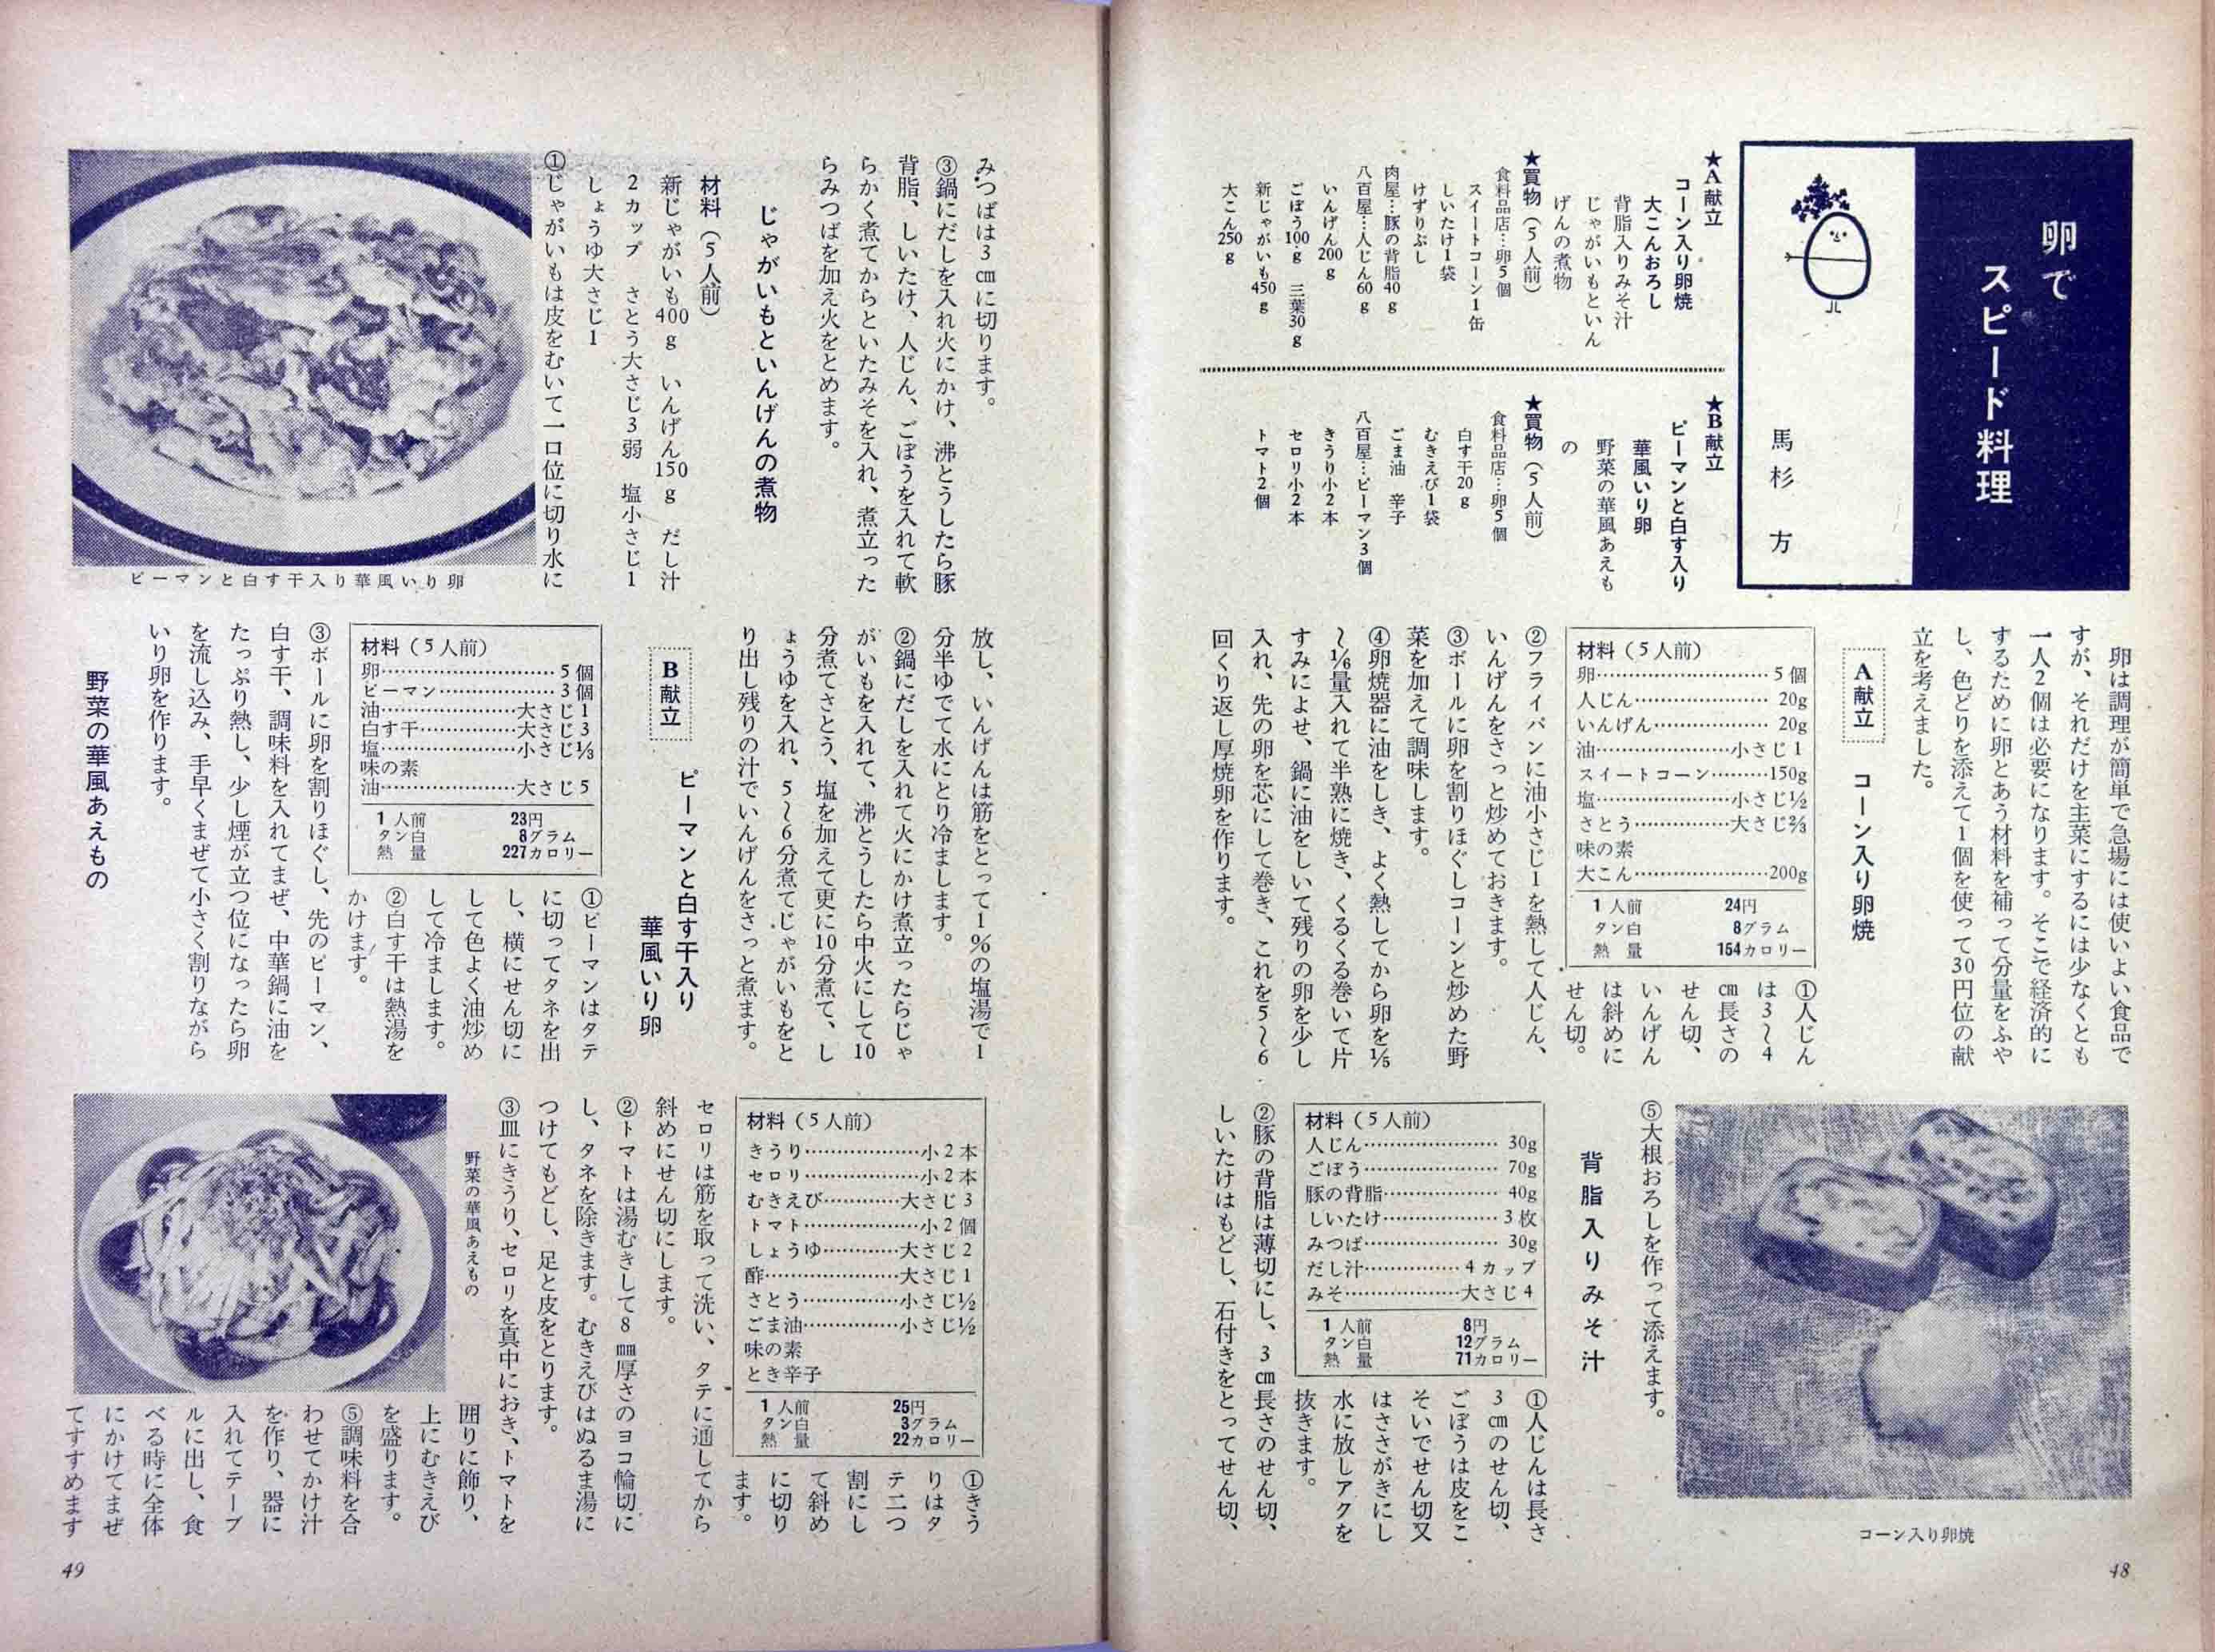 卵で
スピード料理
馬杉 方
★A献立
コーン入り卵焼
大こんおろし
背脂入りみそ汁
じゃがいもといん
げんの煮物
★買物（5人前）
食料品店…卵5個
スイートコーン1缶
しいたけ1袋
けずりぶし
肉屋…豚の背脂40g
八百屋…人じん60g
いんげん200g
ごぼう100g 三葉30g
新じゃがいも450g
大こん250g
★B献立
ピーマンと白す入り
華風いり卵
野菜の華風あえも
の
★買物（5人前）
食料品店…卵5個
白す干20g
むきえび1袋
ごま油 辛子
八百屋…ピーマン3個
きうり小2本
セロリ小2本
トマト2個
卵は調理が簡単で急場には使いよい食品で
すが、それだけを主菜にするには少なくとも
一人2個は必要になります。そこで経済的に
するために卵とあう材料を補って分量をふや
し、色どりを添えて1個を使って30円位の献
立を考えました。
A献立
コーン入り卵焼
材料（5人前）
卵…………………………5個
人じん…………………20g
いんげん………………20g
油………………小さじ1
スイートコーン………150g
塩………………小さじ½
さとう……………大さじ⅔
味の素
大こん…………………200g
1人前 24円
タン白 8グラム
熱量 154カロリー
①人じん
は3〜4
cm長さの
せん切、
いんげん
は斜めに
せん切。
②フライパンに油小さじ1を熱して人じん、
いんげんをさっと炒めておきます。
③ボールに卵を割りほぐしコーンと炒めた野
菜を加えて調味します。
④卵焼器に油をしき、よく熱してから卵を⅕
〜⅙量入れて半熟に焼き、くるくる巻いて片
すみによせ、鍋に油をしいて残りの卵を少し
入れ、先の卵を芯にして巻き、これを5〜6
回くり返し厚焼卵を作ります。
コーン入り卵焼
⑤大根おろしを作って添えます。
背脂入りみそ汁
材料（5人前）
人じん…………………30g
ごぼう…………………70g
豚の背脂………………40g
しいたけ………………3枚
みつば…………………30g
だし汁……………4カップ
みそ………………大さじ4
1人前 8円
タン白 12グラム
熱量 71カロリー
①人じんは長さ
3cmのせん切、
ごぼうは皮をこ
そいでせん切又
はささがきにし
水に放しアクを
抜きます。
②豚の背脂は薄切にし、3cm長さのせん切、
しいたけはもどし、石付きをとってせん切、
48
みつばは3cmに切ります。
③鍋にだしを入れ火にかけ、沸とうしたら豚
背脂、しいたけ、人じん、ごぼうを入れて軟
らかく煮てからといたみそを入れ、煮立った
らみつばを加え火をとめます。
じゃがいもといんげんの煮物
材料（5人前）
新じゃがいも400g いんげん150g だし汁
2カップ さとう大さじ3弱 塩小さじ1
しょうゆ大さじ1
①じゃがいもは皮をむいて一口位に切り水に
ピーマンと白す干入り華風いり卵
放し、いんげんは筋をとって1%の塩湯で1
分半ゆでて水にとり冷まします。
②鍋にだしを入れて火にかけ煮立ったらじゃ
がいもを入れて、沸とうしたら中火にして10
分煮てさとう、塩を加えて更に10分煮て、し
ょうゆを入れ、5〜6分煮てじゃがいもをと
り出し残りの汁でいんげんをさっと煮ます。
B献立
ピーマンと白す干入り
華風いり卵
材料（5人前）
卵…………………………5個
ピーマン………………3個
油………………大さじ1
白す干……………大さじ3
塩………………小さじ⅓
味の素
油………………大さじ5
1人前 23円
タン白 8グラム
熱量 227カロリー
①ピーマンはタテ
に切ってタネを出
し、横にせん切に
して色よく油炒め
して冷まします。
②白す干は熱湯を
かけます。
③ボールに卵を割りほぐし、先のピーマン、
白す干、調味料を入れてまぜ、中華鍋に油を
たっぷり熱し、少し煙が立つ位になったら卵
を流し込み、手早くまぜて小さく割りながら
いり卵を作ります。
野菜の華風あえもの
材料（5人前）
きうり………………小2本
セロリ………………小2本
むきえび…………大さじ3
トマト………………小2個
しょうゆ…………大さじ2
酢…………………大さじ1
さとう……………小さじ½
ごま油……………小さじ½
味の素
とき辛子
1人前 25円
タン白 3グラム
熱量 22カロリー
①きう
りはタ
テ二つ
割にし
て斜め
に切り
ます。
セロリは筋を取って洗い、タテに通してから
斜めにせん切にします。
②トマトは湯むきして8mm厚さのヨコ輪切に
し、タネを除きます。むきえびはぬるま湯に
つけてもどし、足と皮をとります。
③皿にきうり、セロリを真中におき、トマトを
野菜の華風あえもの
囲りに飾り、
上にむきえび
を盛ります。
⑤調味料を合
わせてかけ汁
を作り、器に
入れてテーブ
ルに出し、食
べる時に全体
にかけてまぜ
てすすめます
49